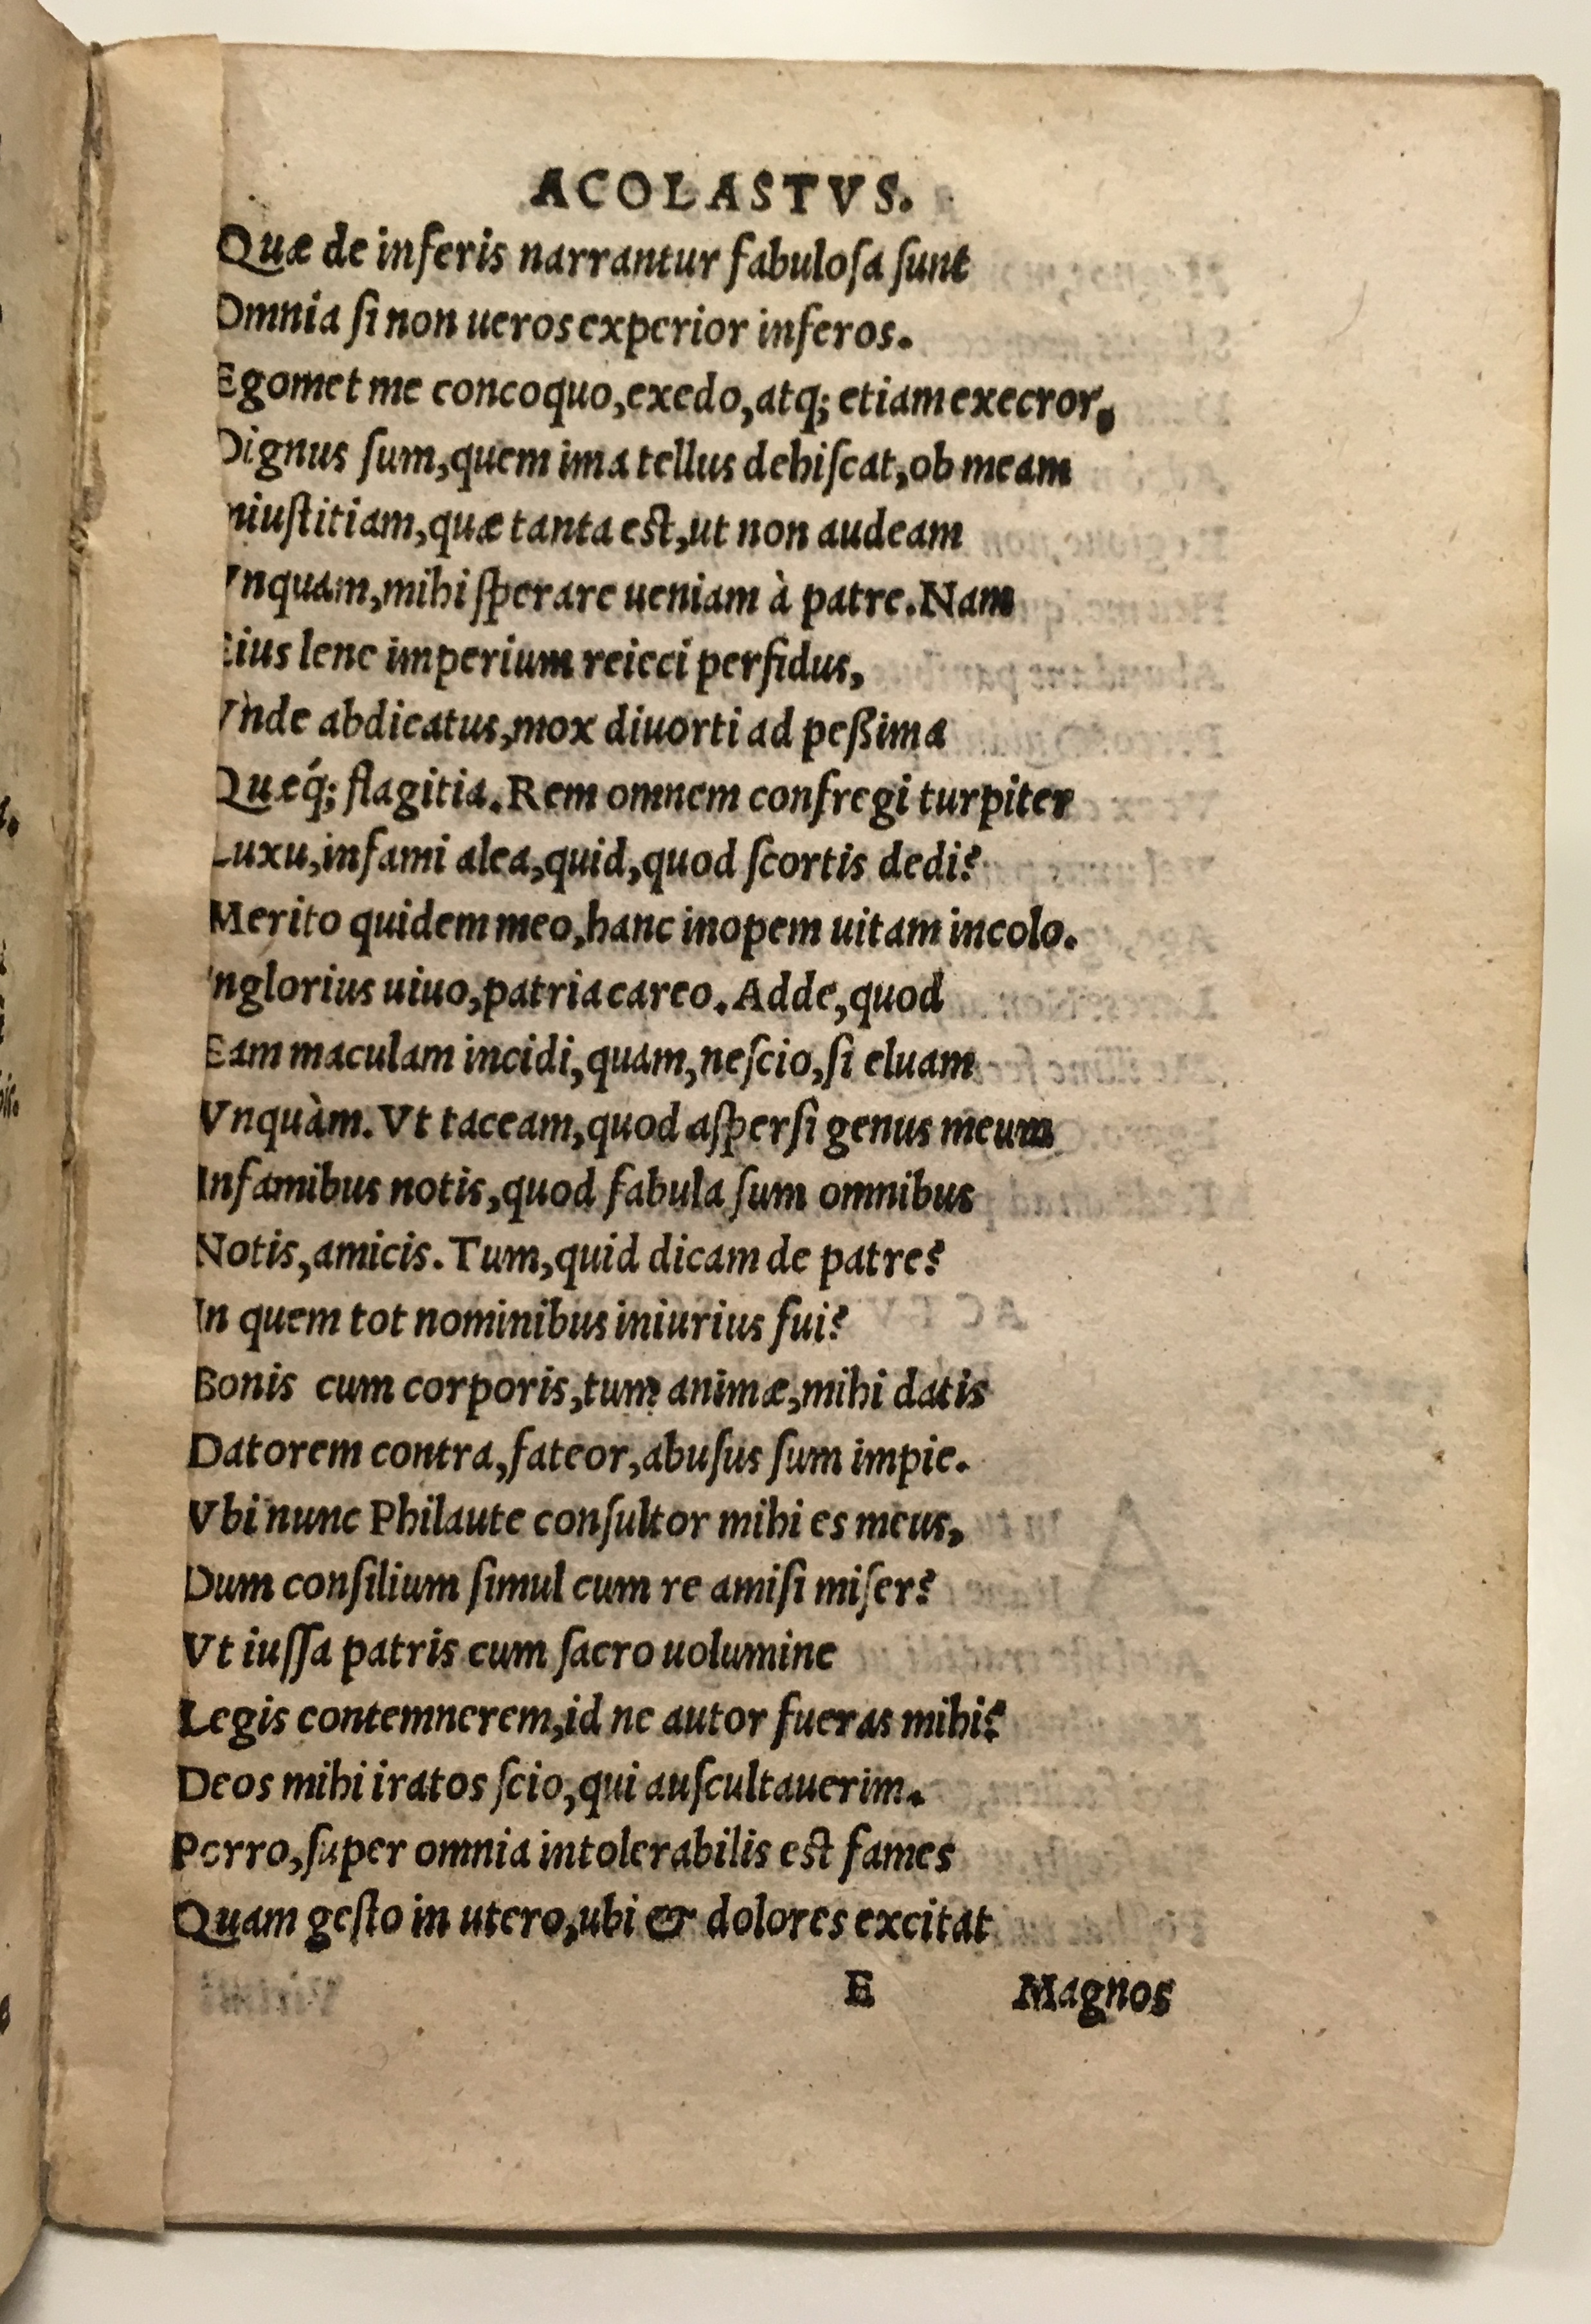 ACOLASTVS.
Quæ de inferis narrantur fabuloſa ſunt
Omnia ſi non ueros experior inferos.
Egomet me concoquo, exedo, atq; etiam execror,
Dignus ſum, quem ima tellus dehiſcat, ob meam
niuſtitiam, quæ tanta eſt, ut non audeam
Vnquam, mihi ſperare ueniam à patre. Nam
Eius lene imperium reieci perfidus,
Vnde abdicatus, mox diuorti ad peßima
Quéq; flagitia. Rem omnem confregi turpiter
Luxu, infami alea, quid, quod ſcortis dedi?
Merito quidem meo, hanc inopem uitam incolo.
nglorius uiuo, patria careo. Adde, quod
Eam maculam incidi, quam, neſcio, ſi eluam
Vnquàm. Vt taceam, quod aſperſi genus meum
Infamibus notis, quod fabula ſum omnibus
Notis, amicis. Tum, quid dicam de patre?
In quem tot nominibus iniurius fui?
Bonis cum corporis, tum animæ, mihi datis
Datorem contra, fateor, abuſus ſum impie.
Vbi nunc Philaute conſultor mihi es meus,
Dum conſilium ſimul cum re amiſi miſer?
Vt iuſſa patris cum ſacro uolumine
Legis contemnerem, id ne autor fueras mihi?
Deos mihi iratos ſcio, qui auſcultauerim.
Porro, ſuper omnia intolerabilis eſt fames
Quam geſto in utero, ubi & dolores excitat
E Magnos